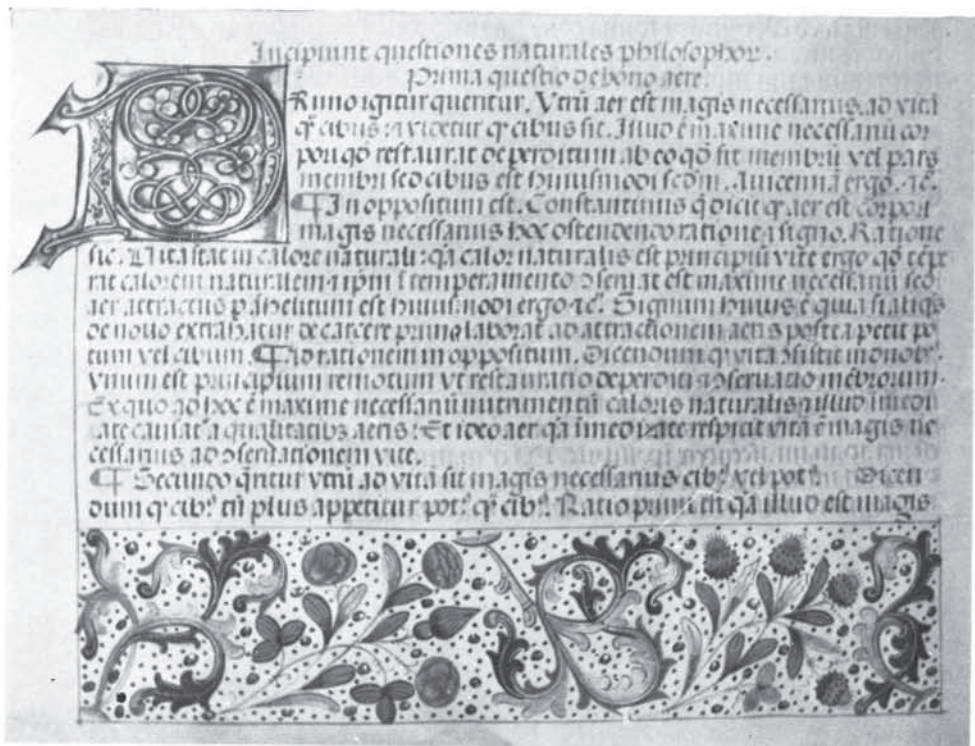 Incipiunt questiones naturales philosophor.
Prima questio de bono aere.
Primo igitur queritur. Vtrũ aer est magis necessarius ad vitã
q̃ cibus: ⁊ videtur q̃ cibus sit. Illud ẽ maxime necessariũ cor
pori qď restaurat deperditum ab eo qď sit membrũ vel pars
membri sed cibus est huiusmodi scďm. Auicennã ergo. ⁊c̃.
¶ In oppositum est. Constantinus q̃ dicit q̃ aer est corpori
magis necessarius hoc ostendendo ratione ⁊ signo. Ratione
sic. Vita stat in calore naturali: q̃a calor naturalis est principiũ vite ergo qď tẽpe
rat calorem naturalem ⁊ ip̃m ĩ temperamento ɔseruat est maxime necessariũ sed
aer attractus p̃ anhelitum est huiusmodi ergo ⁊c̃. Signum huius ẽ quia si aliq̃s
de nouo extrahatur de carcere primo laborat ad attractionem aeris postea petit po
tum vel cibum. ¶ Ad rationem in oppositum. Dicendum q̃ vita ɔsistit in duobꝰ.
vnum est principium remotum vt restauratio deperditi ⁊ ɔseruatio mẽbrorum.
Ex quo ad hoc ẽ maxime necessariũ nutrimentũ caloris naturalis ⁊ illud ĩmedi
ate causat᷑ a qualitatibꝫ aeris: Et ideo aer q̃a ĩmediate respicit vitã ẽ magis ne
cessarius ad ɔseruationem vite.
¶ Secundo q̃ritur vtrũ ad vitã sit magis necessarius cibꝰ vel potꝰ. Dicen
dum q̃ cibꝰ tñ plus appetitur potꝰ q̃ cibꝰ. Ratio primi est q̃a illud est magis